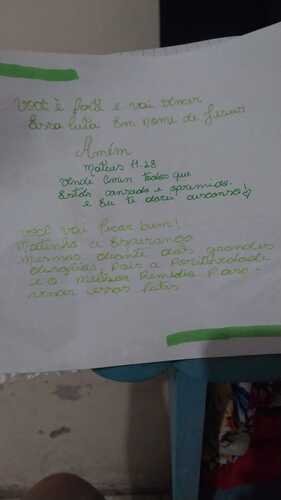 Você é forte e vai vencer
Essa luta Em nome de Jesus
Amém
Mateus 11.28
Vinde a mim todos que
Estão cansado e oprimido
e Eu te darei descanso
Você vai ficar bem!
Matenha a Esperança
Mesmas diante das grandes
direções, Pois a Positividade
e o melhor Remédio Para
essas